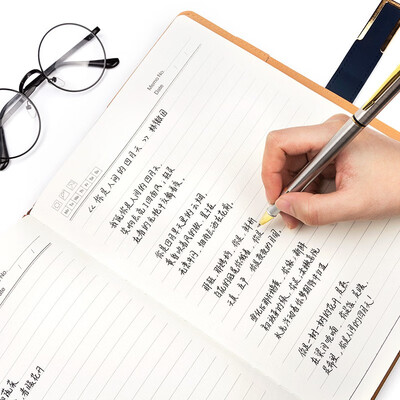 Memo No.
Date
《你是人间的四月天》 林徽因
我说你是人间的四月天,
笑响点亮了四面风;轻灵
在春的光艳中交舞着变。
你是四月早天里的云烟,
黄昏吹着风的软,星子在
无意中闪,细雨点洒在花前。
那轻,那娉婷,你是,鲜妍
百花的冠冕你戴着,你是
天真,庄严,你是夜夜的月圆。
雪化后那片鹅黄,你像;新鲜
初放芽的绿,你是;柔嫩喜悦
水光浮动着你梦期待中白莲
你是一树一树的花开,是燕
在梁间呢喃,你是爱,是暖,
是希望,你是人间的四月天!
No.
花开